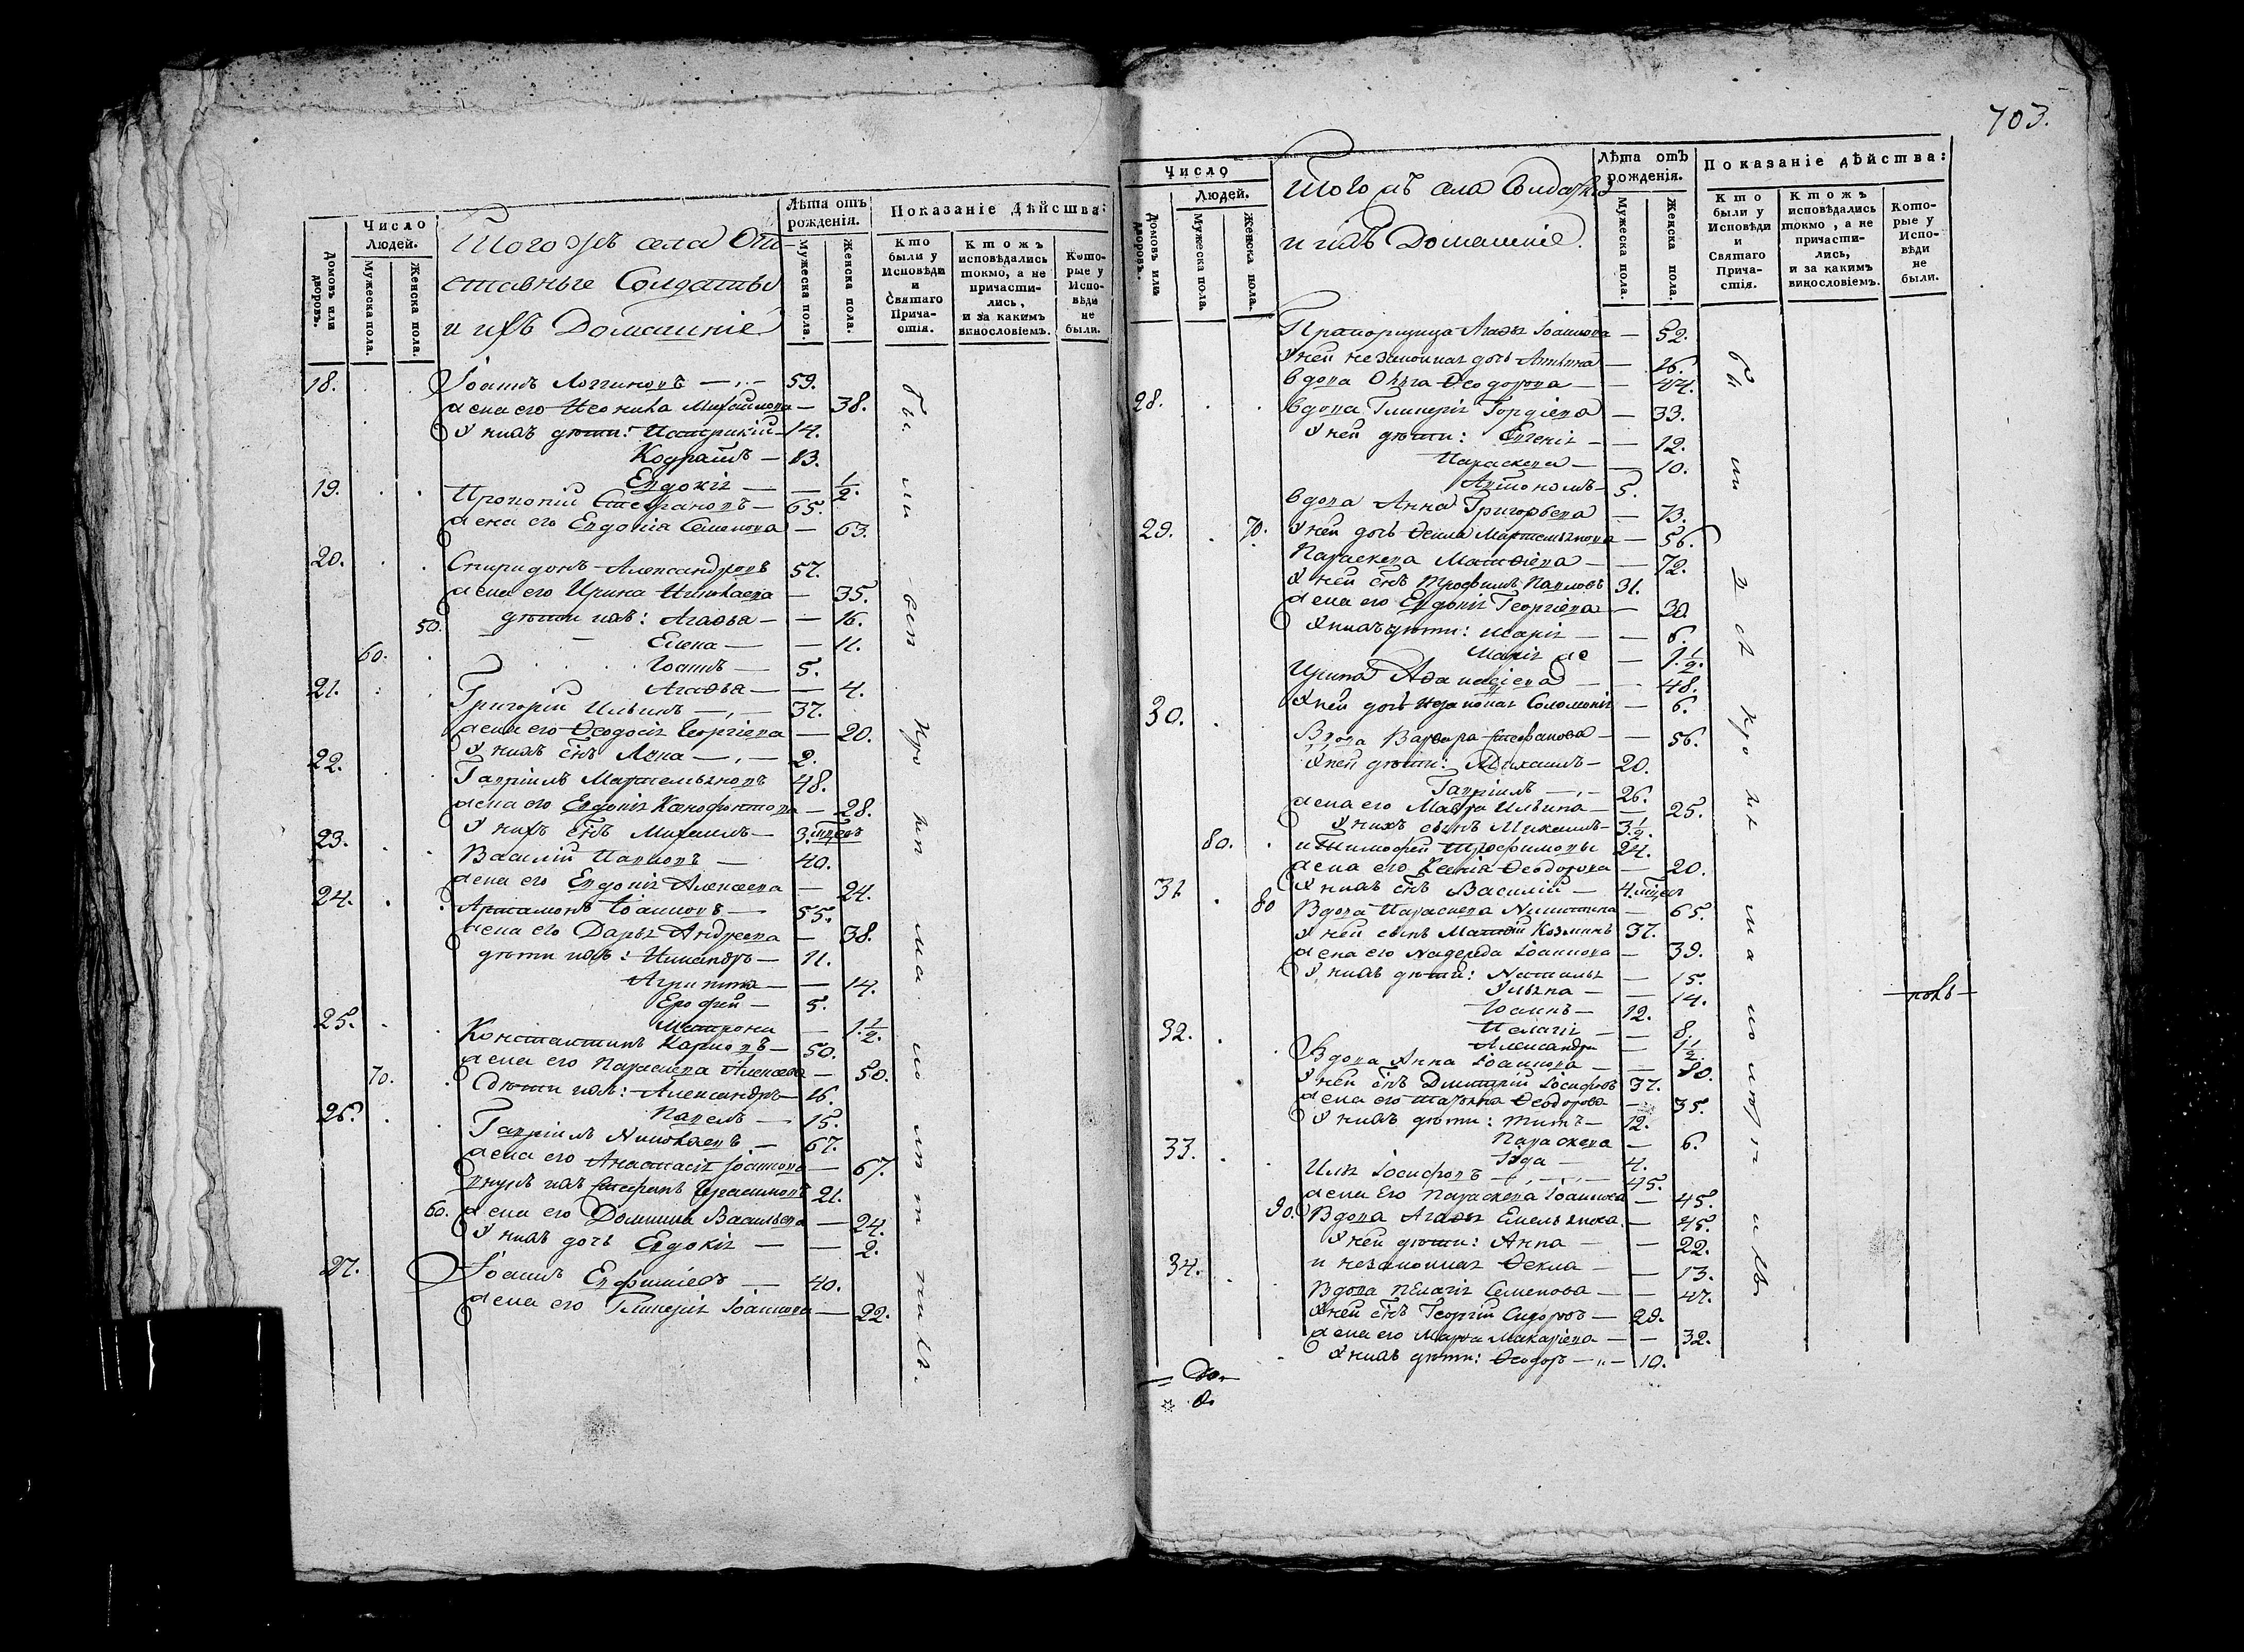 Число
Людей.
Домовъ или дворовъ.
Мужеска пола.
Женска пола.
Того жъ села От-
ставные Солдаты
и ихъ Домашніе
Лѣта отъ рожденія.
Мужеска пола.
Женска пола.
Показаніе дѣйства:
Кто были у Исповѣди и Святаго Прича-стія.
Ктожъ исповѣдались токмо, а не причасти-лись, и за какимъ винословіемъ.
Кото-рые у Испо-вѣди не были.
18. Іоаннъ Логгиновъ — 59.
жена его Неонила Михайлова — 38.
У нихъ дѣти: Патрикій — 14.
Кодратъ — 13.
Евдокія — 1/2.
19. Прокопій Стефановъ — 65.
жена его Евдокія Семенова — 63.
20. Спиридонъ Александровъ 57.
жена его Ирина Николаева — 35.
50. дѣти ихъ: Агафья — 16.
Елена — 11.
60. Іоаннъ — 5.
Агафья — 4.
21. Григорій Ильинъ — 37.
жена его Ѳеодосія Георгіева — 20.
У нихъ снъ Лука — 2.
22. Гавріилъ Мартемьяновъ 48.
жена его Евдокія Ксенофонтова — 28.
У нихъ снъ Михаилъ — 3. мцевъ
23. Василій Павловъ — 40.
жена его Евдокія Алексѣева — 24.
24. Артамонъ Іоанновъ — 55.
жена его Дарья Андреева — 38.
дѣти ихъ: Никандръ — 11.
Агрипина — 14.
Ерофей — 5.
Матрона — 1.1/2.
25. Константинъ Карповъ — 50.
жена его Параскева Алексѣева — 50.
70. дѣти ихъ: Александръ — 16.
Павелъ — 15.
26. Гавріилъ Николаевъ — 67.
жена его Анастасія Іоаннова — 67.
внукъ ихъ Стефанъ Герасимовъ 21.
60. жена его Домникія Васильева — 24.
У нихъ дочь Евдокія — 2.
27. Іоаннъ Евфиміевъ — 40.
жена его Гликерія Іоаннова — 22.
бы ли всѣ
703.
Число
Людей.
Домовъ или дворовъ.
Мужеска пола.
Женска пола.
Того жъ села Солдатки
и ихъ Домашніе.
Лѣта отъ рожденія.
Мужеска пола.
Женска пола.
Показаніе дѣйства:
Кто были у Исповѣди и Святаго Прича-стія.
Ктожъ исповѣдались токмо, а не причасти-лись, и за какимъ винословіемъ.
Кото-рые у Испо-вѣди не были.
Прапорщица Агафья Іоаннова — 52.
У ней незаконная дочь — 16.
вдова Ольга Ѳеодорова — 44.
28. вдова Гликерія Гордіева — 33.
У ней дѣти: Евгенія — 12.
Параскева — 10.
Артемонъ — 5.
вдова Анна Григорьева — 73.
29. 70. У ней дочь Ѳекла Мартемьянова — 56.
Параскева Матѳіева — 72.
У ней снъ Трофимъ Павловъ 31.
жена его Евдокія Георгіева — 30.
У нихъ дѣти: Марія — 6.
Марія же — 1.1/2.
Ирина Афанасіева — 48.
30. У ней дочь незаконная Соломонія — 6.
Вдова Варвара Стефанова — 56.
У ней дѣти: Михаилъ — 20.
Гавріилъ — 26.
жена его Мавра Ильина — 25.
У нихъ сынъ Михаилъ — 3 1/2.
80. и Тимофей Трофимовы 24.
жена его Ксенія Ѳеодорова — 20.
31. 80 У нихъ снъ Василій — 4. мцевъ
Вдова Параскева Никитина — 65.
У ней сынъ Матѳій Козминъ 37.
жена его Надежда Іоаннова — 39.
У нихъ дѣти: Наталья — 15.
Ульяна — 14.
Іоаннъ — 12.
32. Пелагія — 8.
Александра — 1 1/2.
Вдова Анна Іоаннова — 80.
У ней снъ Димитрій Іосифовъ 37.
жена его Татьяна Ѳеодорова — 35.
У нихъ дѣти: Титъ — 12.
Параскева — 6.
33. Іуда — 4.
Илья Іосифовъ — 45.
жена Его Параскева Іоаннова — 45.
90. Вдова Агафья Емельянова — 45.
У ней дѣти: Анна — 22.
и незаконная Ѳекла — 13.
34. Вдова Пелагія Семенова — 47.
У ней снъ Георгій Сидоровъ — 29.
жена его Марѳа Макаріева — 32.
У нихъ дѣти: Ѳеодоръ — 10.